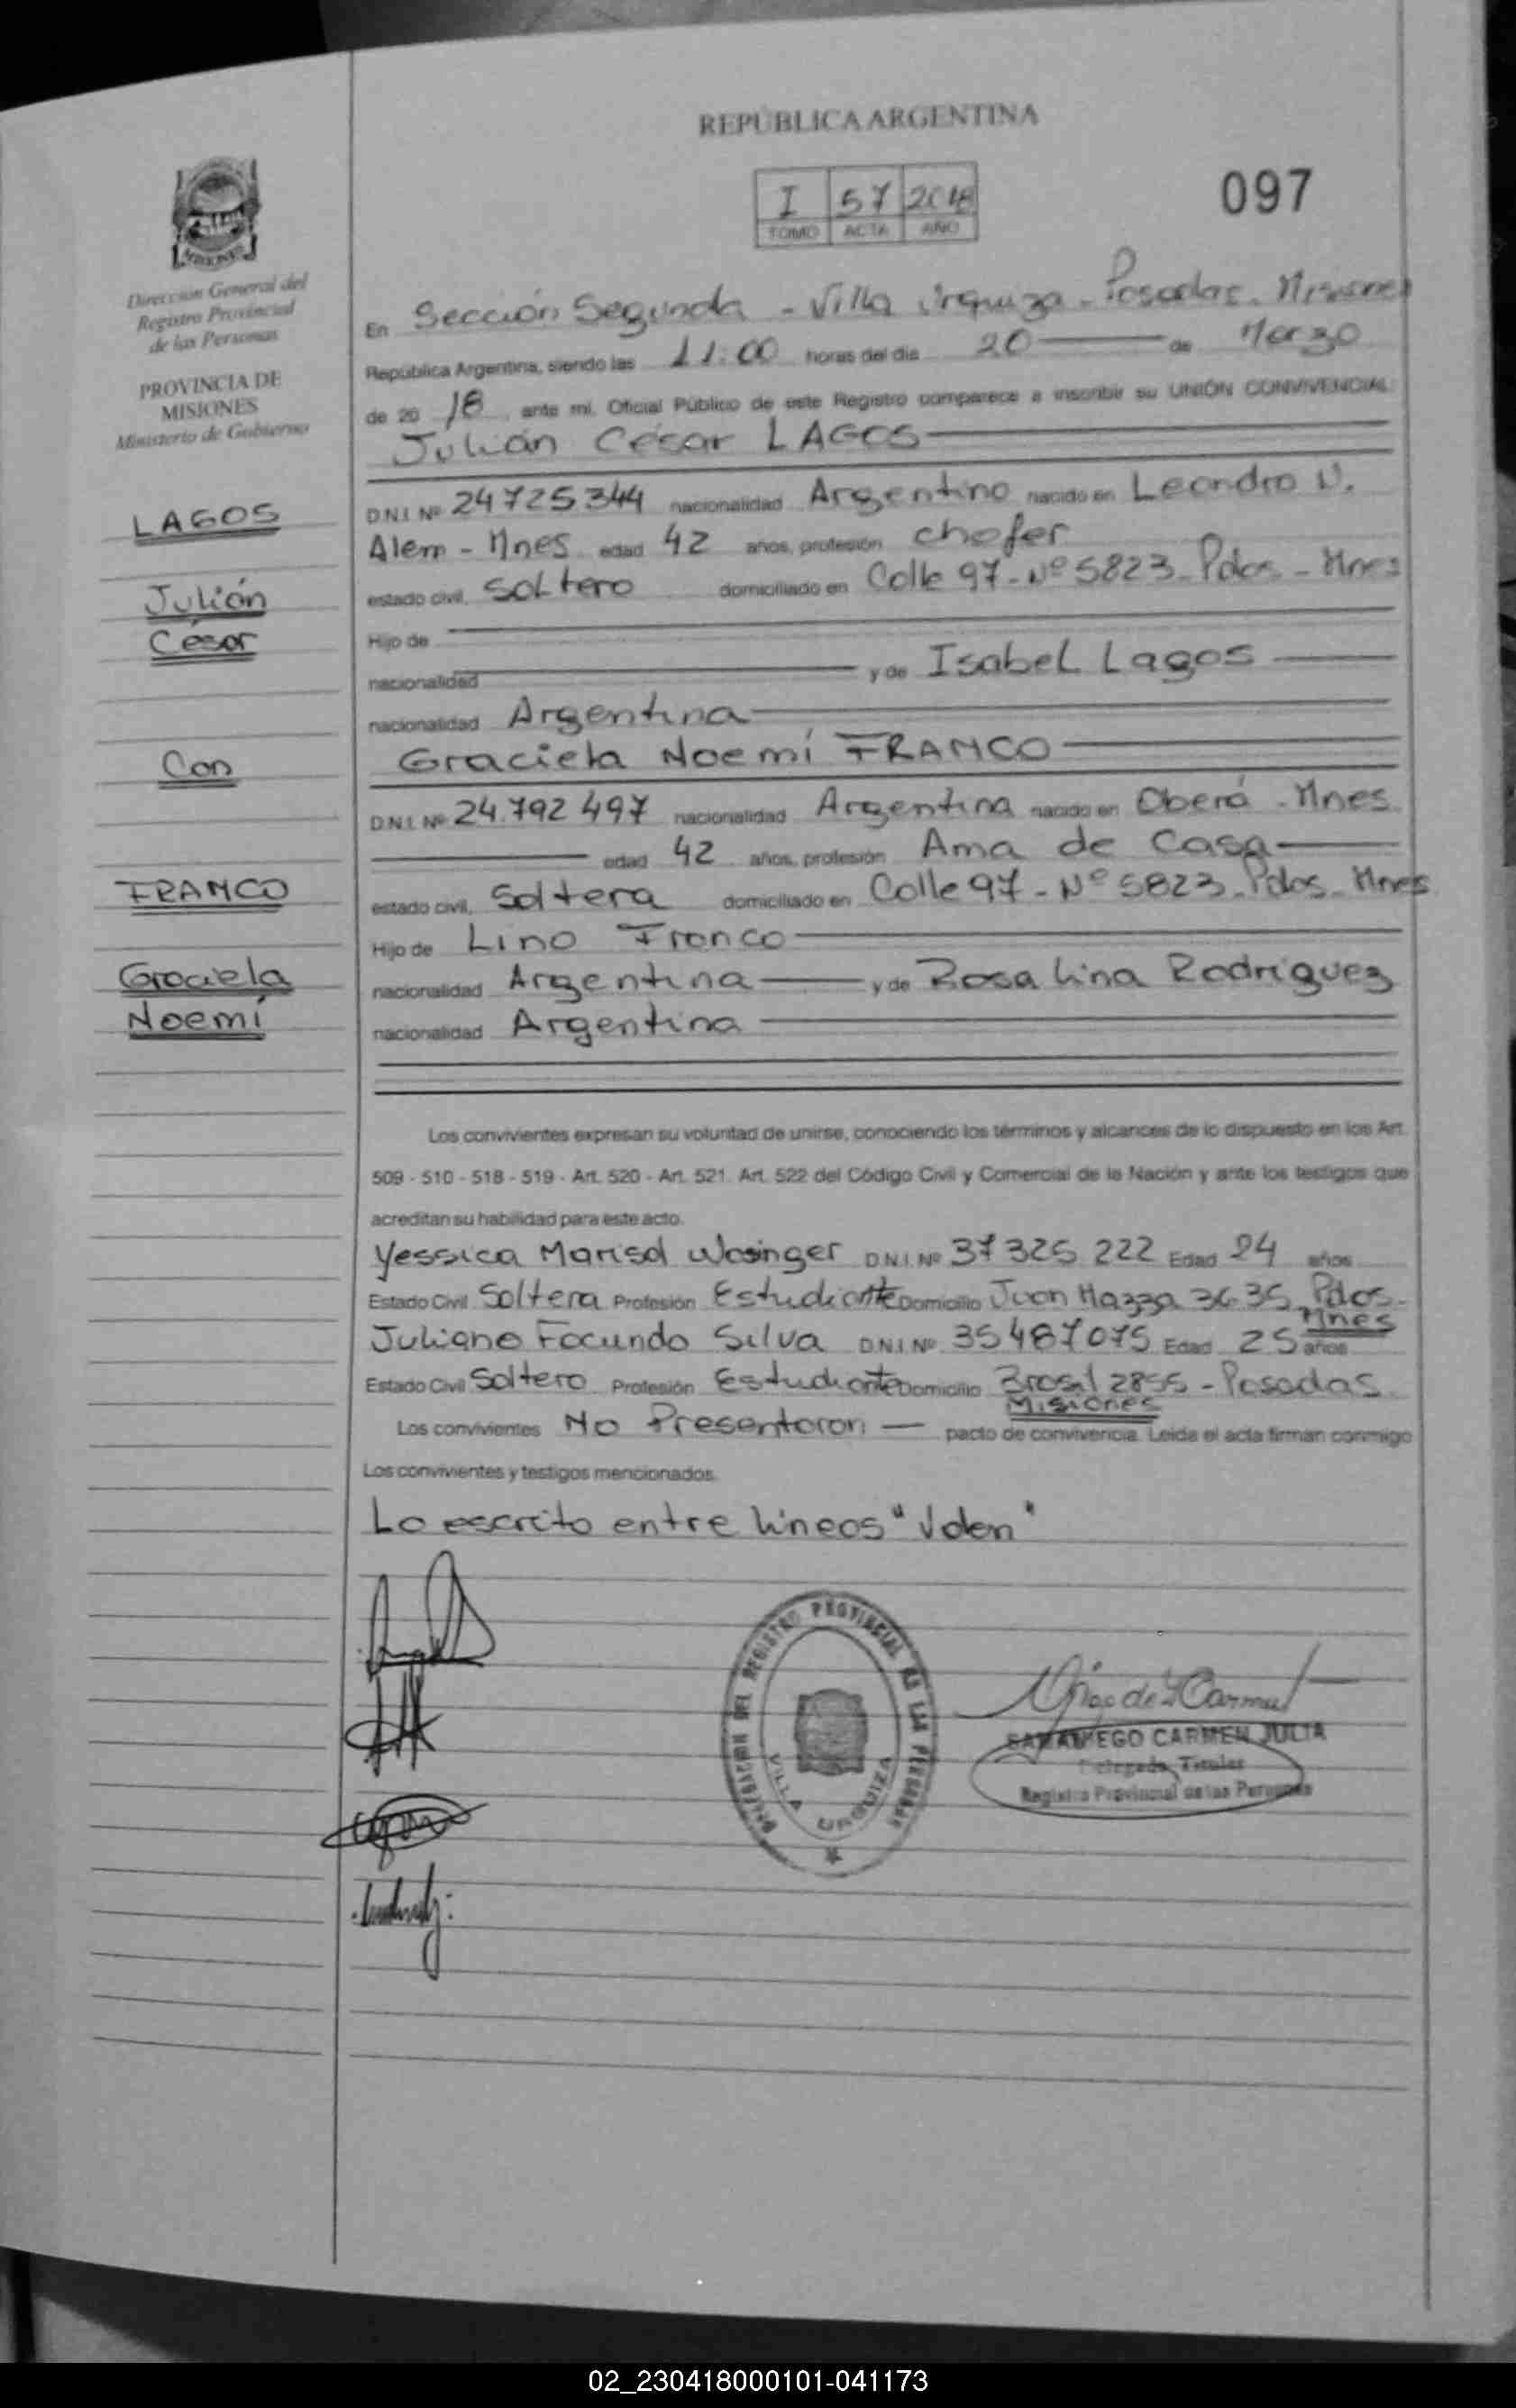 REPÚBLICA ARGENTINA
I 57 2018
TOMO ACTA AÑO
097
MISIONES
Dirección General del
Registro Provincial
de las Personas
PROVINCIA DE
MISIONES
Ministerio de Gobierno
LAGOS
Julián
César
Con
FRANCO
Graciela
Noemí
En Sección Segunda - Villa Urquiza - Posadas - Misiones
República Argentina, siendo las 11:00 horas del día 20 de Marzo
de 20 18, ante mi, Oficial Público de este Registro comparece a inscribir su UNIÓN CONVIVENCIAL:
Julián César LAGOS
D.N.I. Nº 24725344 nacionalidad Argentino nacido en Leandro N.
Alem - Mnes edad 42 años, profesión chofer
estado civil, Soltero domiciliado en Calle 97 - Nº 5823 - Pdas - Mnes
Hijo de
nacionalidad y de Isabel Lagos
nacionalidad Argentina
Graciela Noemí FRANCO
D.N.I. Nº 24.792 497 nacionalidad Argentina nacido en Oberá - Mnes
edad 42 años, profesión Ama de Casa
estado civil, Soltera domiciliado en Calle 97 - Nº 5823 - Pdas - Mnes
Hijo de Lino Franco
nacionalidad Argentina y de Rosalina Rodriguez
nacionalidad Argentina
Los convivientes expresan su voluntad de unirse, conociendo los términos y alcances de lo dispuesto en los Art.
509 - 510 - 518 - 519 - Art. 520 - Art. 521. Art. 522 del Código Civil y Comercial de la Nación y ante los testigos que
acreditan su habilidad para este acto.
Yessica Marisol Wasinger D.N.I. Nº 37 325 222 Edad 24 años
Estado Civil Soltera Profesión Estudiante Domicilio Juan Mazza 3635 Pdas -
Mnes
Juliano Facundo Silva D.N.I. Nº 35487075 Edad 25 años
Estado Civil Soltero Profesión Estudiante Domicilio Brasil 2855 - Posadas
Misiones
Los convivientes No Presentaron pacto de convivencia. Leída el acta firman conmigo
Los convivientes y testigos mencionados.
Lo escrito entre líneas "Valen"
DELEGACION DEL REGISTRO PROVINCIAL DE LAS PERSONAS
VILLA URQUIZA
CARMEN JULIA
Delegada Titular
Registro Provincial de las Personas
02_230418000101-041173